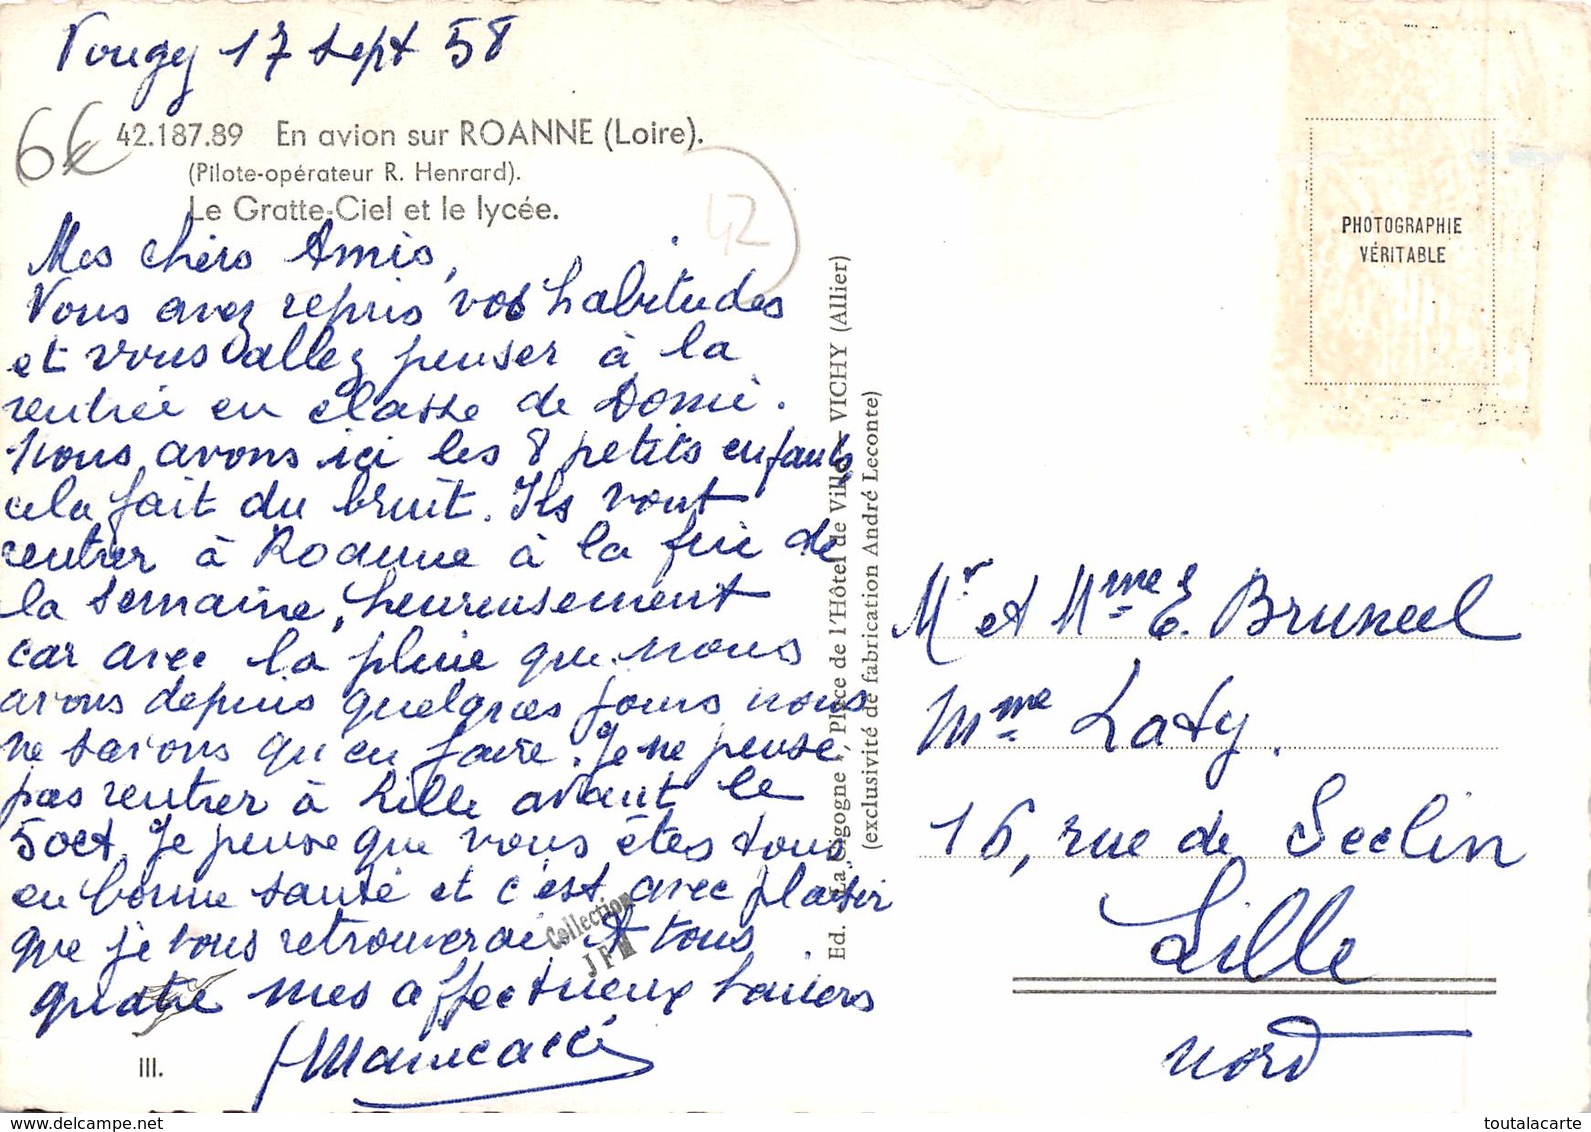 Vougy 17 Sept 58
6€
42.187.89 En avion sur ROANNE (Loire).
(Pilote-opérateur R. Henrard).
Le Gratte-Ciel et le lycée.
42
Mes chers Amis,
Vous avez repris vos habitudes
et vous allez penser à la
rentrée en classe de Domi.
Nous avons ici les 8 petits enfants
cela fait du bruit. Ils vont
rentrer à Roanne à la fin de
la semaine, heureusement
car avec la pluie que nous
avons depuis quelques jours nous
ne savons qu'en faire. Je ne pense
pas rentrer à Lille avant le
5 oct. Je pense que vous êtes tous
en bonne santé et c'est avec plaisir
que je vous retrouverai. A tous
quatre mes affectueux baisers
III.
Collection
JFM
Ed. "La Cigogne", Place de l'Hôtel de Ville - VICHY (Allier)
(exclusivité de fabrication André Leconte)
PHOTOGRAPHIE
VÉRITABLE
Mr et Mme E. Bruneel
Mme Laty.
16, rue de Seclin
Lille
Nord
www.delcampe.net
toutalacarte